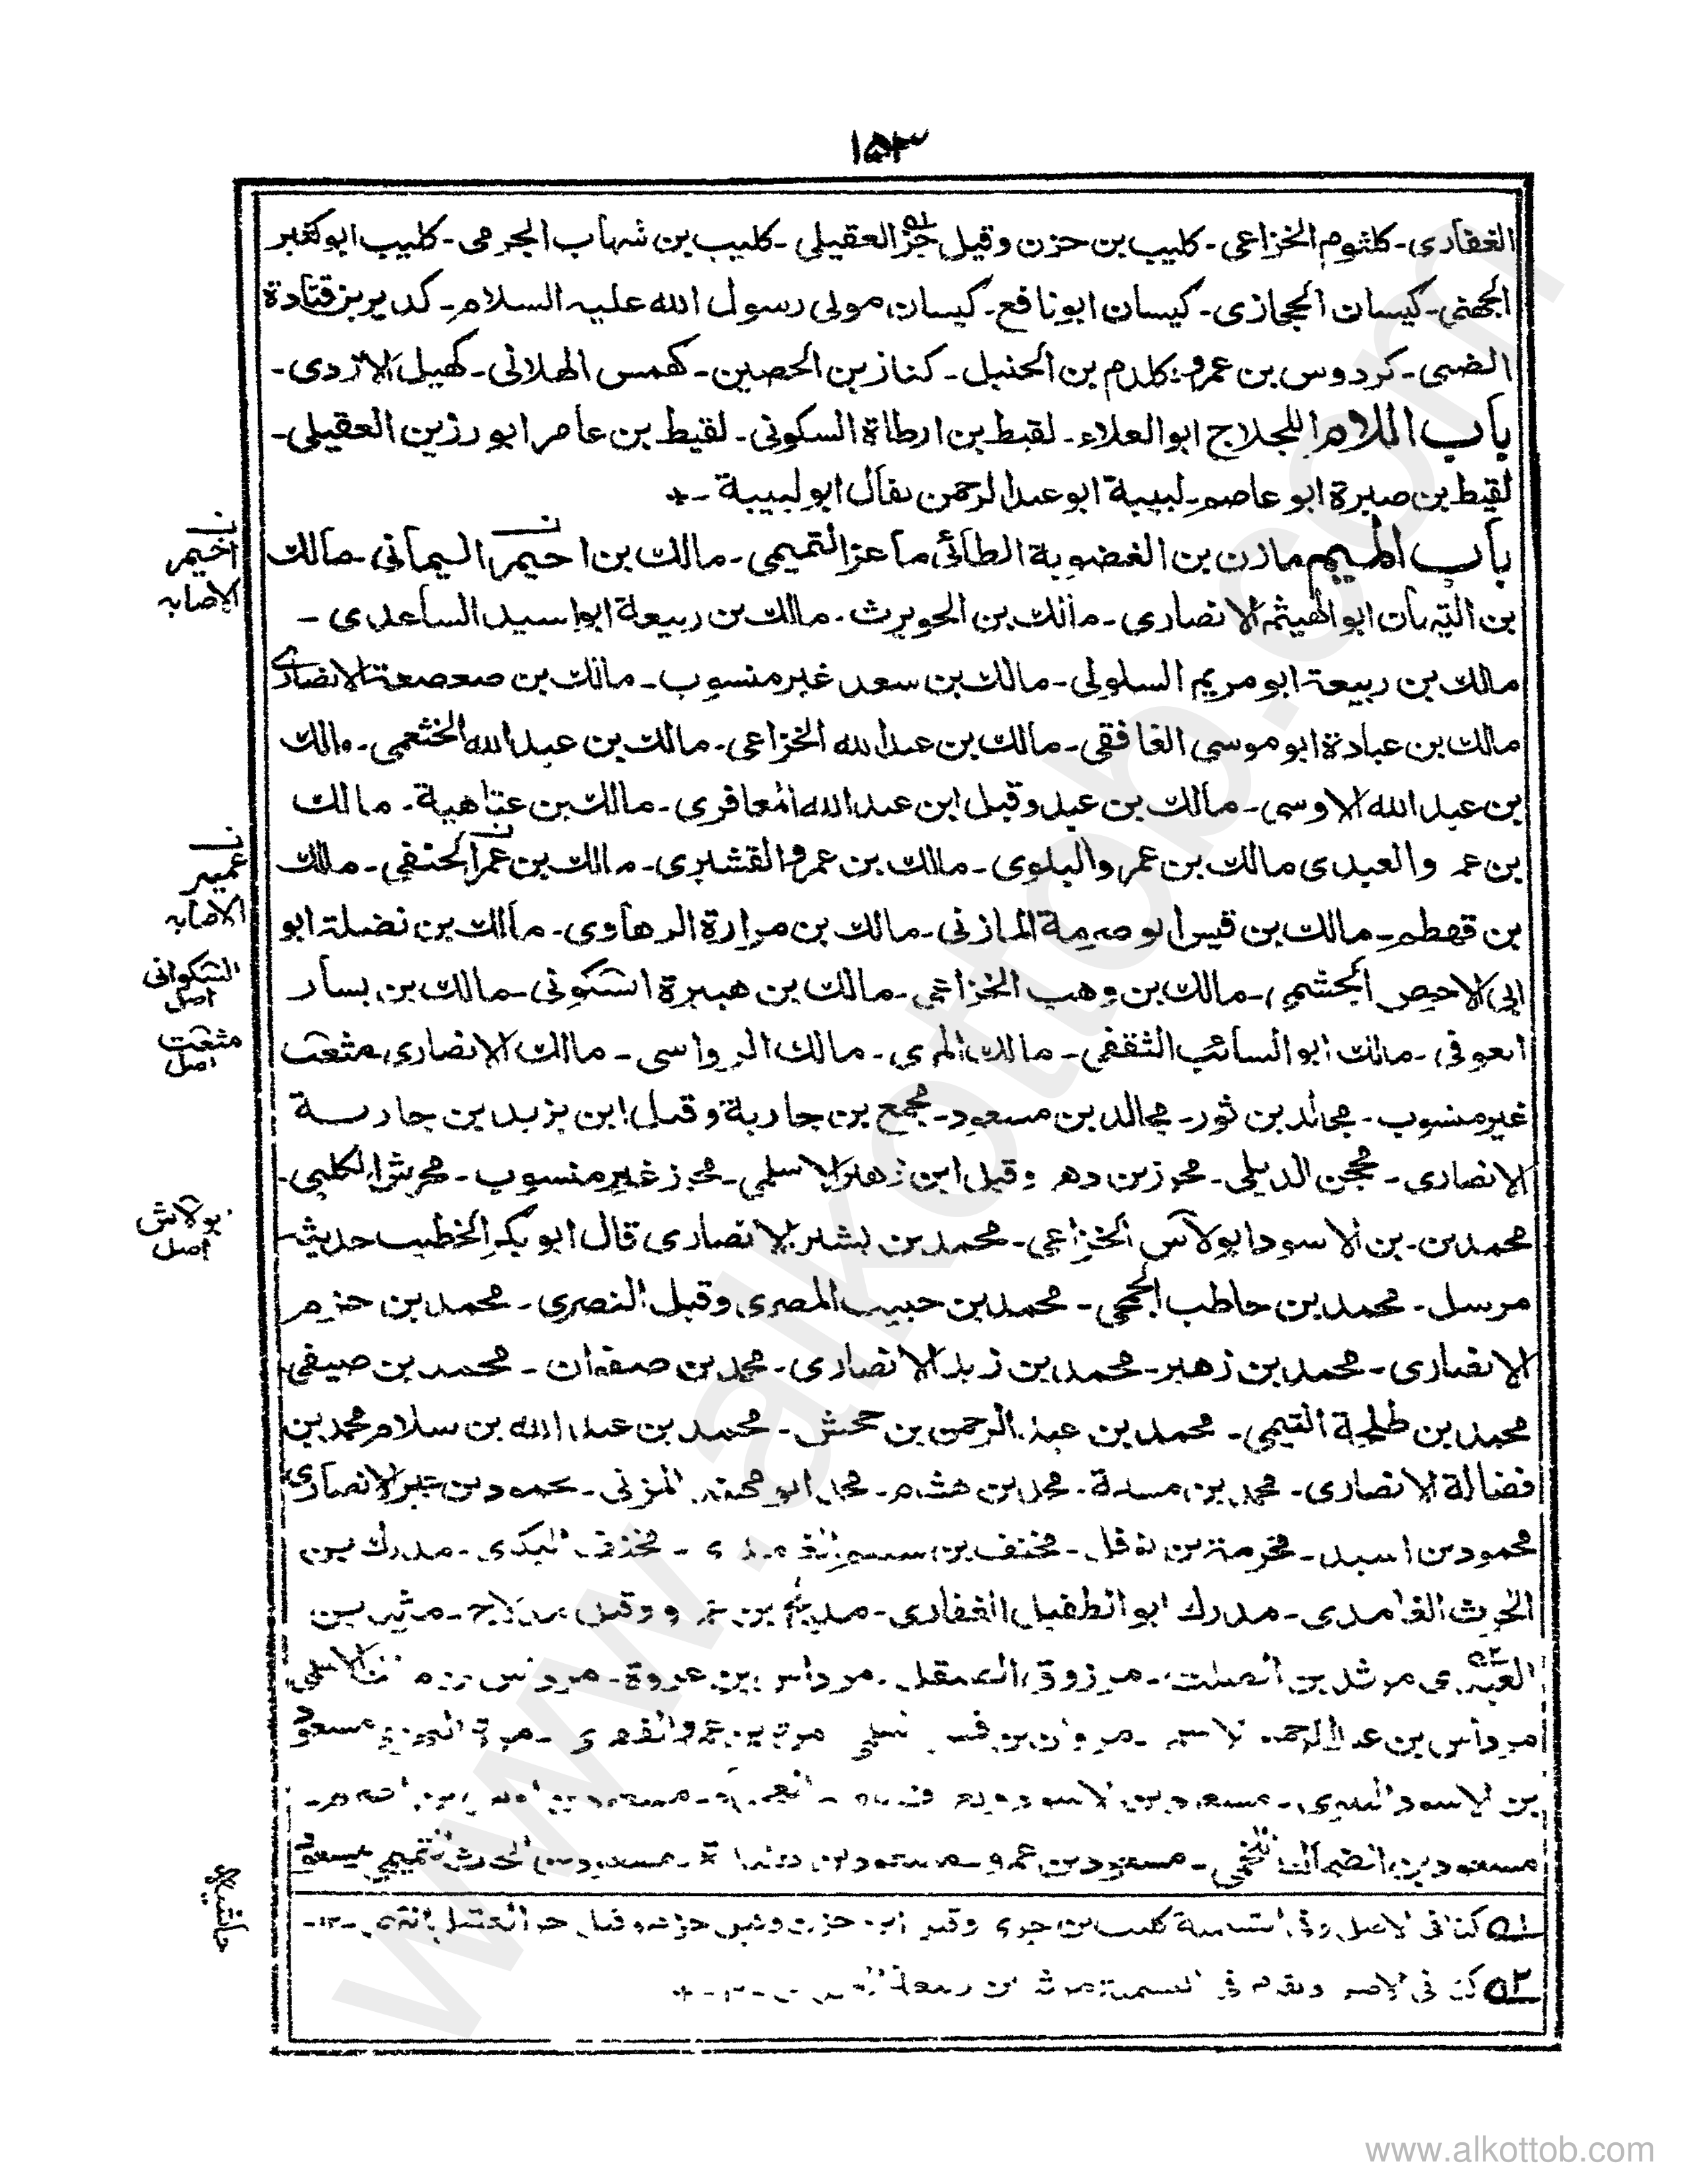 ١٥٣
الغفارى - كلثوم الخزاعى - كليب بن حزن وقيل جز العقيلى - كليب بن شهاب الجرمى - كليب ابو كثير
الجهنى - كيسان الحجازى - كيسان ابو نافع - كيسان مولى رسول الله عليه السلام - كدير بن قتادة
الضبى - كردوس بن عمرو - كلدم بن الحنبل - كناز بن الحصين - كهمس الهلالى - كهيل الازدى -
باب اللام اللجلاج ابو العلاء - لقيط بن ارطاة السكونى - لقيط بن عامر ابو رزين العقيلى -
لقيط بن صبرة ابو عاصم - لبيبة ابو عبد الرحمن يقال ابو لبيبة - *
باب الميم مازن بن الغضوبة الطائى ماعز التميمى - مالك بن احيمر اليمانى - مالك
اخيمر
الاصابه
بن التيهان ابو الهيثم الانصارى - مالك بن الحويرث - مالك بن ربيعة ابو اسيد الساعدى -
مالك بن ربيعة ابو مريم السلولى - مالك بن سعد غير منسوب - مالك بن صعصعة الانصارى
مالك بن عبادة ابو موسى الغافقى - مالك بن عبد الله الخزاعى - مالك بن عبد الله الخثعمى - مالك
بن عبد الله الاوسى - مالك بن عبد وقيل ابن عبد الله المعافرى - مالك بن عتاهية - مالك
بن عمرو العبدى مالك بن عمرو البلوى - مالك بن عمرو القشيرى - مالك بن عمر الحنفى - مالك
عمير
الاصابه
بن قهطم - مالك بن قيس ابو صرمة المازنى - مالك بن مرارة الرهاوى - مالك بن نضلة ابو
ابى الاحوص الجشمى - مالك بن وهب الخزاعى - مالك بن هبيرة السكونى - مالك بن يسار
السكوانى
اصل
العوفى - مالك ابو السائب الثقفى - مالك المرى - مالك الرواسى - مالك الانصارى مثعب
مثعب
اصل
غير منسوب - مجالد بن ثور - مجالد بن مسعود - مجمع بن جارية وقيل ابن يزيد بن جارية
الانصارى - محجن الديلى - محرز بن دهر وقيل ابن زهير الاسلمى - محرز غير منسوب - محرش الكلبى -
محمد بن - بن الاسود ابو لاس الخزاعى - محمد بن بشير الانصارى قال ابو بكر الخطيب حديثه
بولاش
اصل
مرسل - محمد بن حاطب الجمحى - محمد بن حبيب المصرى وقيل النصرى - محمد بن حزم
الانصارى - محمد بن زهير - محمد بن زيد الانصارى - محمد بن صفوان - محمد بن صيفى
محمد بن طلحة التيمى - محمد بن عبد الرحمن بن جحش - محمد بن عبد الله بن سلام محمد بن
فضالة الانصارى - محمد بن مسلمة - محمد بن هشام - محمد ابو المزنى - محمود بن الانصارى
محمود بن اسيد - مخرمة بن نوفل - مخنف بن - مخرف البكرى - مدرك بن
الحرث الغامدى - مدرك ابو الطفيل الغفارى - مدلج بن عمرو وقيل مدلاج - مرثد بن
العبدى مرثد بن الصلت - مرزوق الصيقل - مرداس بن عروة - مرداس بن الاسلمى
مرداس بن عبد الرحمن - مروان بن قيس مرة بن عمرو الفهرى - مرة مسعود
بن الاسود - مسعود بن الاسود - مسعود بن
مسعود بن الضحاك اللخمى - مسعود بن عمرو - مسعود بن - مسعود بن الحرث التميمى مسعود
حاشية
١ كذا فى الاصل وفى التسمية كليب بن جزى وقيل ابن حزن وقيل
٢ كذا فى الاصل وتقدم فى التسمية مرثد بن ربيعة
www.alkottob.com
www.alkottob.com